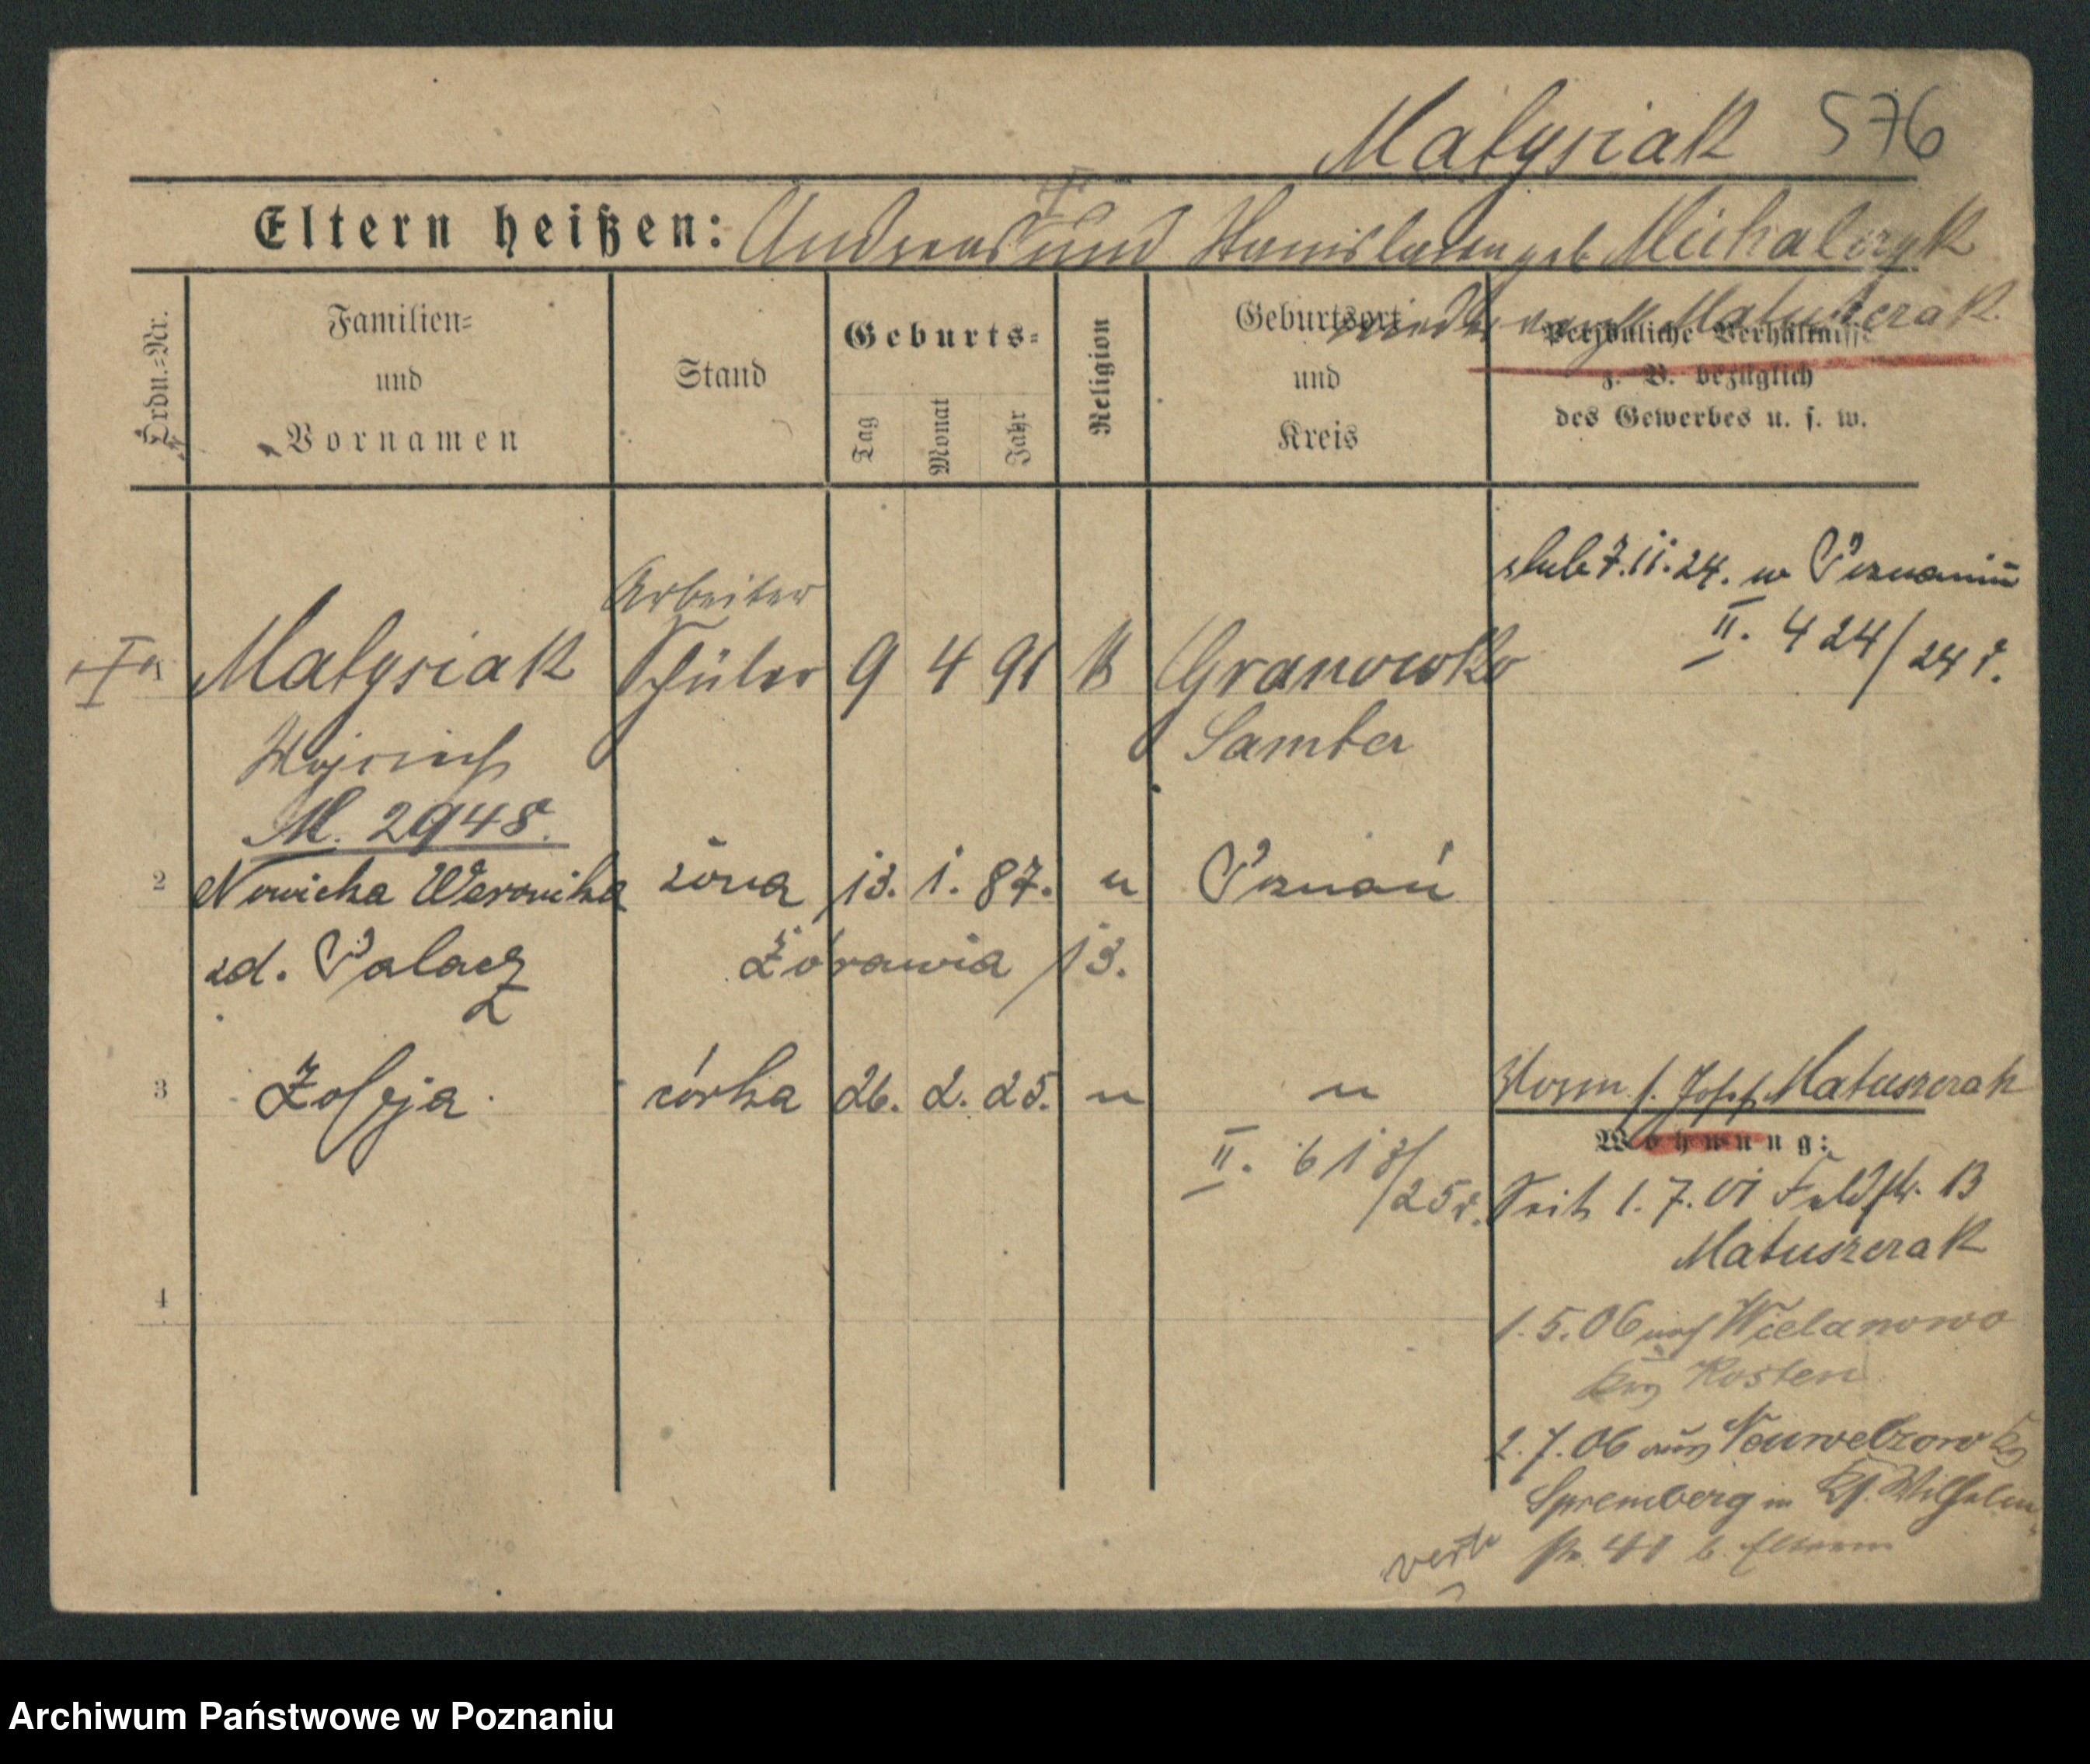 Matysiak 576
Eltern heißen: Andreas und Stanislawa geb Michalczyk
Matuszczak
Ordn.-Nr.
Familien- und Vornamen
Stand
Geburts-
Tag
Monat
Jahr
Religion
Geburtsort und Kreis
Persönliche Verhältnisse
z. B. bezüglich
des Gewerbes u. s. w.
ślub 7.11.24. w Poznaniu
II. 424/24 r.
Arbeiter
Matysiak Schüler 9 4 91 K Granowko
Wojciech Samter
M. 2948.
2 Nowicka Weronika żona 13. 1. 87. " Poznań
zd. Palacz Żórawia 13.
3 Zofja córka 26. 2. 25. " "
II. 618/25 r.
Vorm. f. Josef Matuszczak
Wohnung:
Seit 1.7.01 Feldstr. 13
Matuszczak
1.5.06 nach Wielanowo
Krs Kosten
2.7.06 aus Neuwelzow Krs
Spremberg in Wilhelm-
str. 41 b. Eltern
4